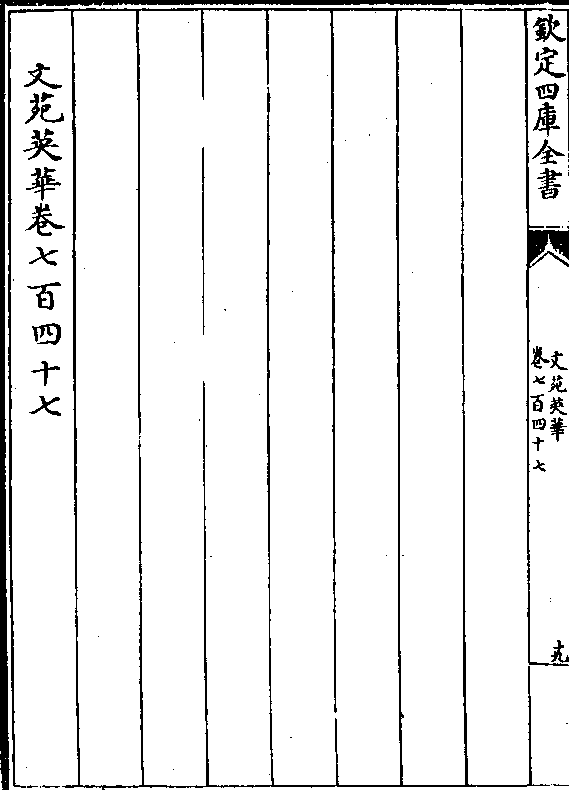 欽定四庫全書
文苑英華
卷七百四十七
十九
文苑英華卷七百四十七